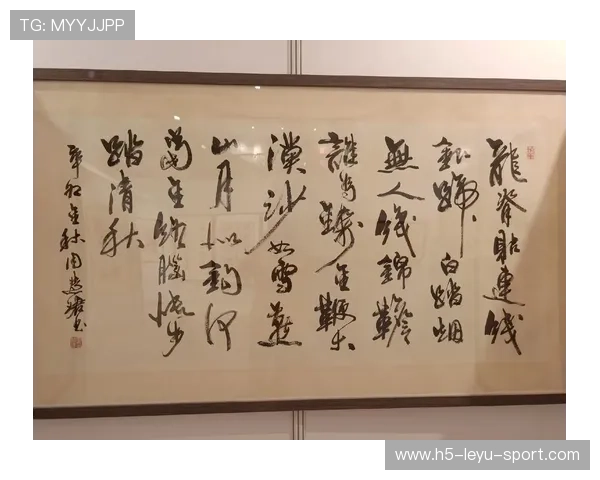 TG: MYYJJPP
龍脊貼連錢
銀蹄白踏烟
無人織錦韂
誰為鑄金鞭大
漠沙如雪燕
山月似鉤何
當金絡腦快走
踏清秋
辛卯金秋周
www.h5-leyu-sport.com